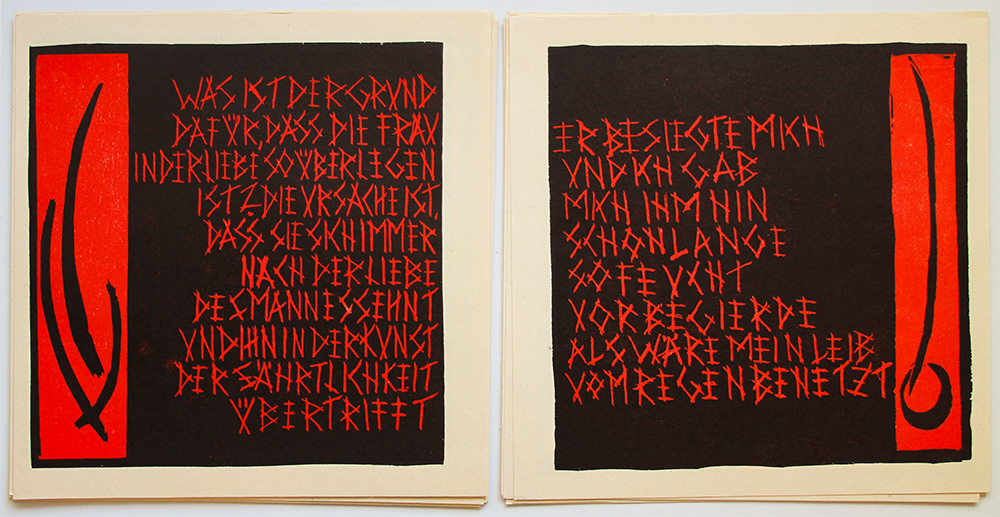 WAS IST DER GRUND
DAFÜR, DASS DIE FRAU
IN DER LIEBE SO ÜBERLEGEN
IST? DIE URSACHE IST,
DASS SIE SICH IMMER
NACH DER LIEBE
DES MANNES SEHNT
UND IHN IN DER KUNST
DER SÄHRTLICHKEIT
ÜBERTRIFFT
ER BESIEGTE MICH
UND ICH GAB
MICH IHM HIN
SCHON LANGE
SO FEUCHT
VOR BEGIERDE
ALS WÄRE MEIN LEIB
VOM REGEN BENETZT.